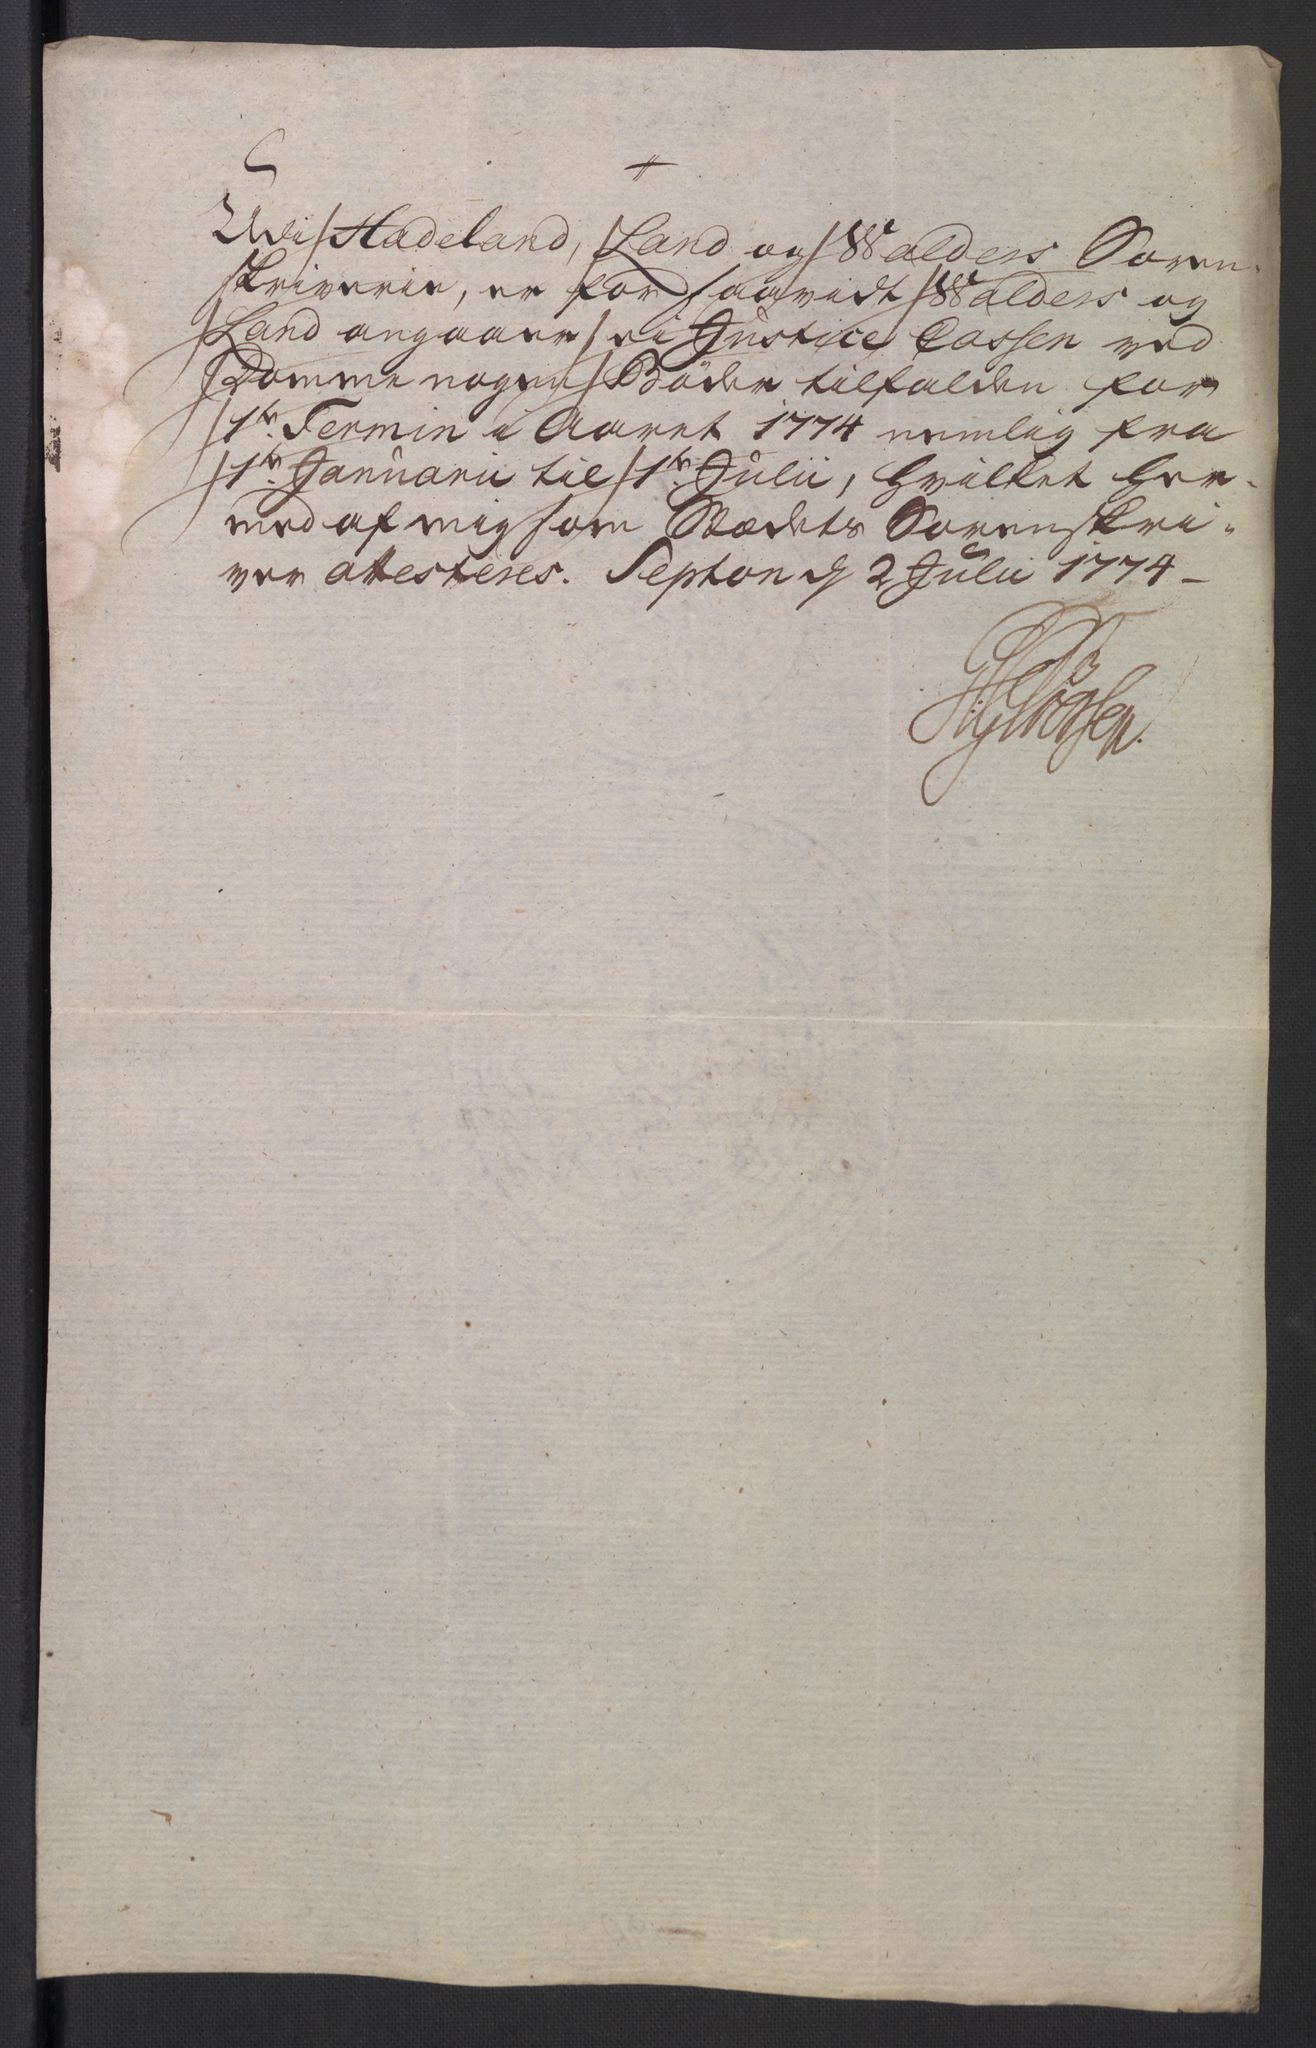 Udi Hadeland, Land og Walders Soren-
skriverie, er for saavidt Walders og
Land angaaer, ei Justice Cassen ved
Domme nogen Böder tilfalden for
1te Termin i Aaret 1774 nemlig fra
1te Januarii til 1te Julii, hvilket her-
med af mig som Stædets Sorenskri-
ver attesteres. Septon d 2 Julii 1774